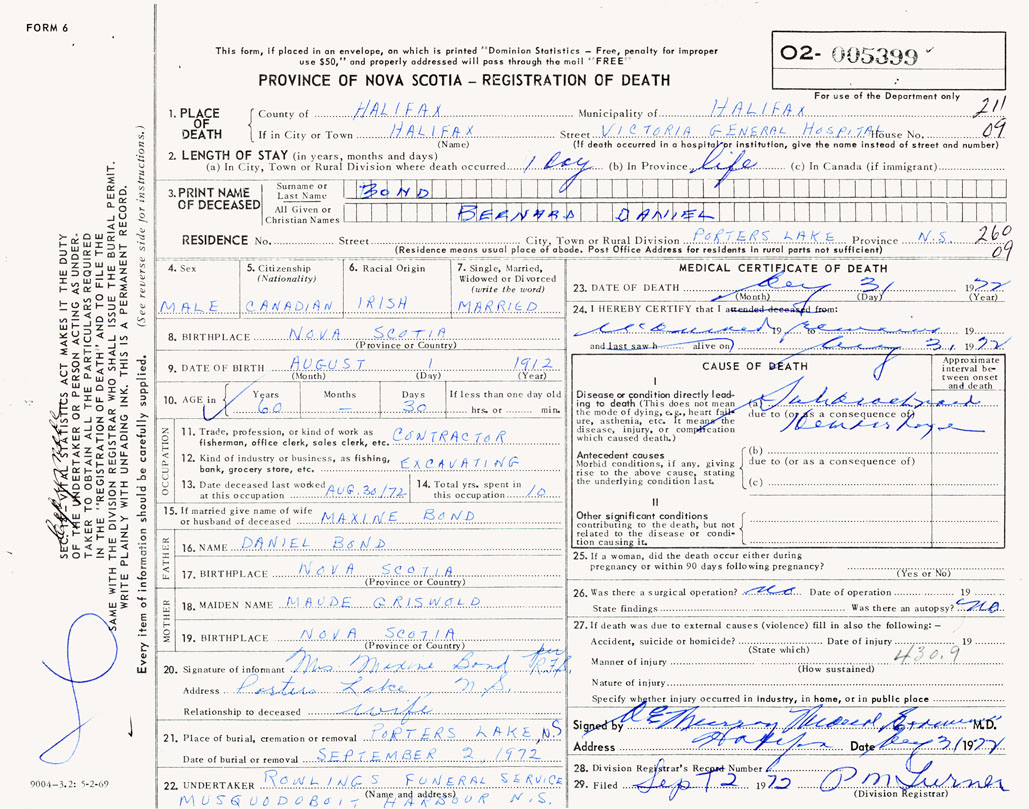 FORM 6
This form, if placed in an envelope, on which is printed "Dominion Statistics – Free, penalty for improper
use $50," and properly addressed will pass through the mail "FREE"
PROVINCE OF NOVA SCOTIA – REGISTRATION OF DEATH
O2- 005399
For use of the Department only
1. PLACE OF DEATH
County of HALIFAX Municipality of HALIFAX 211
If in City or Town HALIFAX Street VICTORIA GENERAL HOSPITAL House No. 09
(Name) (If death occurred in a hospital or institution, give the name instead of street and number)
2. LENGTH OF STAY (in years, months and days)
(a) In City, Town or Rural Division where death occurred 1 day (b) In Province life (c) In Canada (if immigrant)
3. PRINT NAME OF DECEASED
Surname or Last Name BOND
All Given or Christian Names BERNARD DANIEL
RESIDENCE No. Street City, Town or Rural Division PORTERS LAKE Province N.S. 260
(Residence means usual place of abode. Post Office Address for residents in rural parts not sufficient) 09
4. Sex MALE
5. Citizenship (Nationality) CANADIAN
6. Racial Origin IRISH
7. Single, Married, Widowed or Divorced (write the word) MARRIED
8. BIRTHPLACE NOVA SCOTIA
(Province or Country)
9. DATE OF BIRTH AUGUST 1 1912
(Month) (Day) (Year)
10. AGE in Years Months Days If less than one day old
60 – 30 hrs. or min.
OCCUPATION
11. Trade, profession or kind of work as
fisherman, office clerk, sales clerk, etc. CONTRACTOR
12. Kind of industry or business, as fishing,
bank, grocery store, etc. EXCAVATING
13. Date deceased last worked
at this occupation AUG.30/72
14. Total yrs. spent in
this occupation 10
15. If married give name of wife
or husband of deceased MAXINE BOND
FATHER
16. NAME DANIEL BOND
17. BIRTHPLACE NOVA SCOTIA
(Province or Country)
MOTHER
18. MAIDEN NAME MAUDE GRISWOLD
19. BIRTHPLACE NOVA SCOTIA
(Province or Country)
20. Signature of informant Mrs Maxine Bond per
Address Porters Lake, N.S.
Relationship to deceased wife
21. Place of burial, cremation or removal PORTERS LAKE, NS
Date of burial or removal SEPTEMBER 2, 1972
22. UNDERTAKER ROWLINGS FUNERAL SERVICE
(Name and address)
MUSQUODOBOIT HARBOUR N.S.
MEDICAL CERTIFICATE OF DEATH
23. DATE OF DEATH 31 1972
(Month) (Day) (Year)
24. I HEREBY CERTIFY that I attended deceased from:
examined 19 to remains 19
and last saw h alive on 31 1972
CAUSE OF DEATH
Approximate interval between onset and death
I
Disease or condition directly lead-
ing to death (This does not mean
the mode of dying, e.g., heart fail-
ure, asthenia, etc. It means the
disease, injury, or complication
which caused death.)
(a) Subarachnoid
due to (or as a consequence of)
Hemorrhage
Antecedent causes
Morbid conditions, if any, giving
rise to the above cause, stating
the underlying condition last.
(b)
due to (or as a consequence of)
(c)
II
Other significant conditions
contributing to the death, but not
related to the disease or condi-
tion causing it.
25. If a woman, did the death occur either during
pregnancy or within 90 days following pregnancy?
(Yes or No)
26. Was there a surgical operation? no Date of operation 19
State findings Was there an autopsy? no
27. If death was due to external causes (violence) fill in also the following: –
Accident, suicide or homicide? Date of injury 19
(State which) 430.9
Manner of injury
(How sustained)
Nature of injury
Specify whether injury occurred in industry, in home, or in public place
Signed by Murray Medical Examiner M.D.
Address Halifax Date 31 1972
28. Division Registrar's Record Number
29. Filed Sept 2 1972 P M Turner
(Division Registrar)
SEC. VITAL STATISTICS ACT MAKES IT THE DUTY
OF THE UNDERTAKER OR PERSON ACTING AS UNDER-
TAKER TO OBTAIN ALL THE PARTICULARS REQUIRED
IN THE "REGISTRATION OF DEATH" AND TO FILE THE
SAME WITH THE DIVISION REGISTRAR WHO SHALL ISSUE THE BURIAL PERMIT.
WRITE PLAINLY WITH UNFADING INK. THIS IS A PERMANENT RECORD.
Every item of information should be carefully supplied. (See reverse side for instructions.)
9004–3.2: 5-2-69